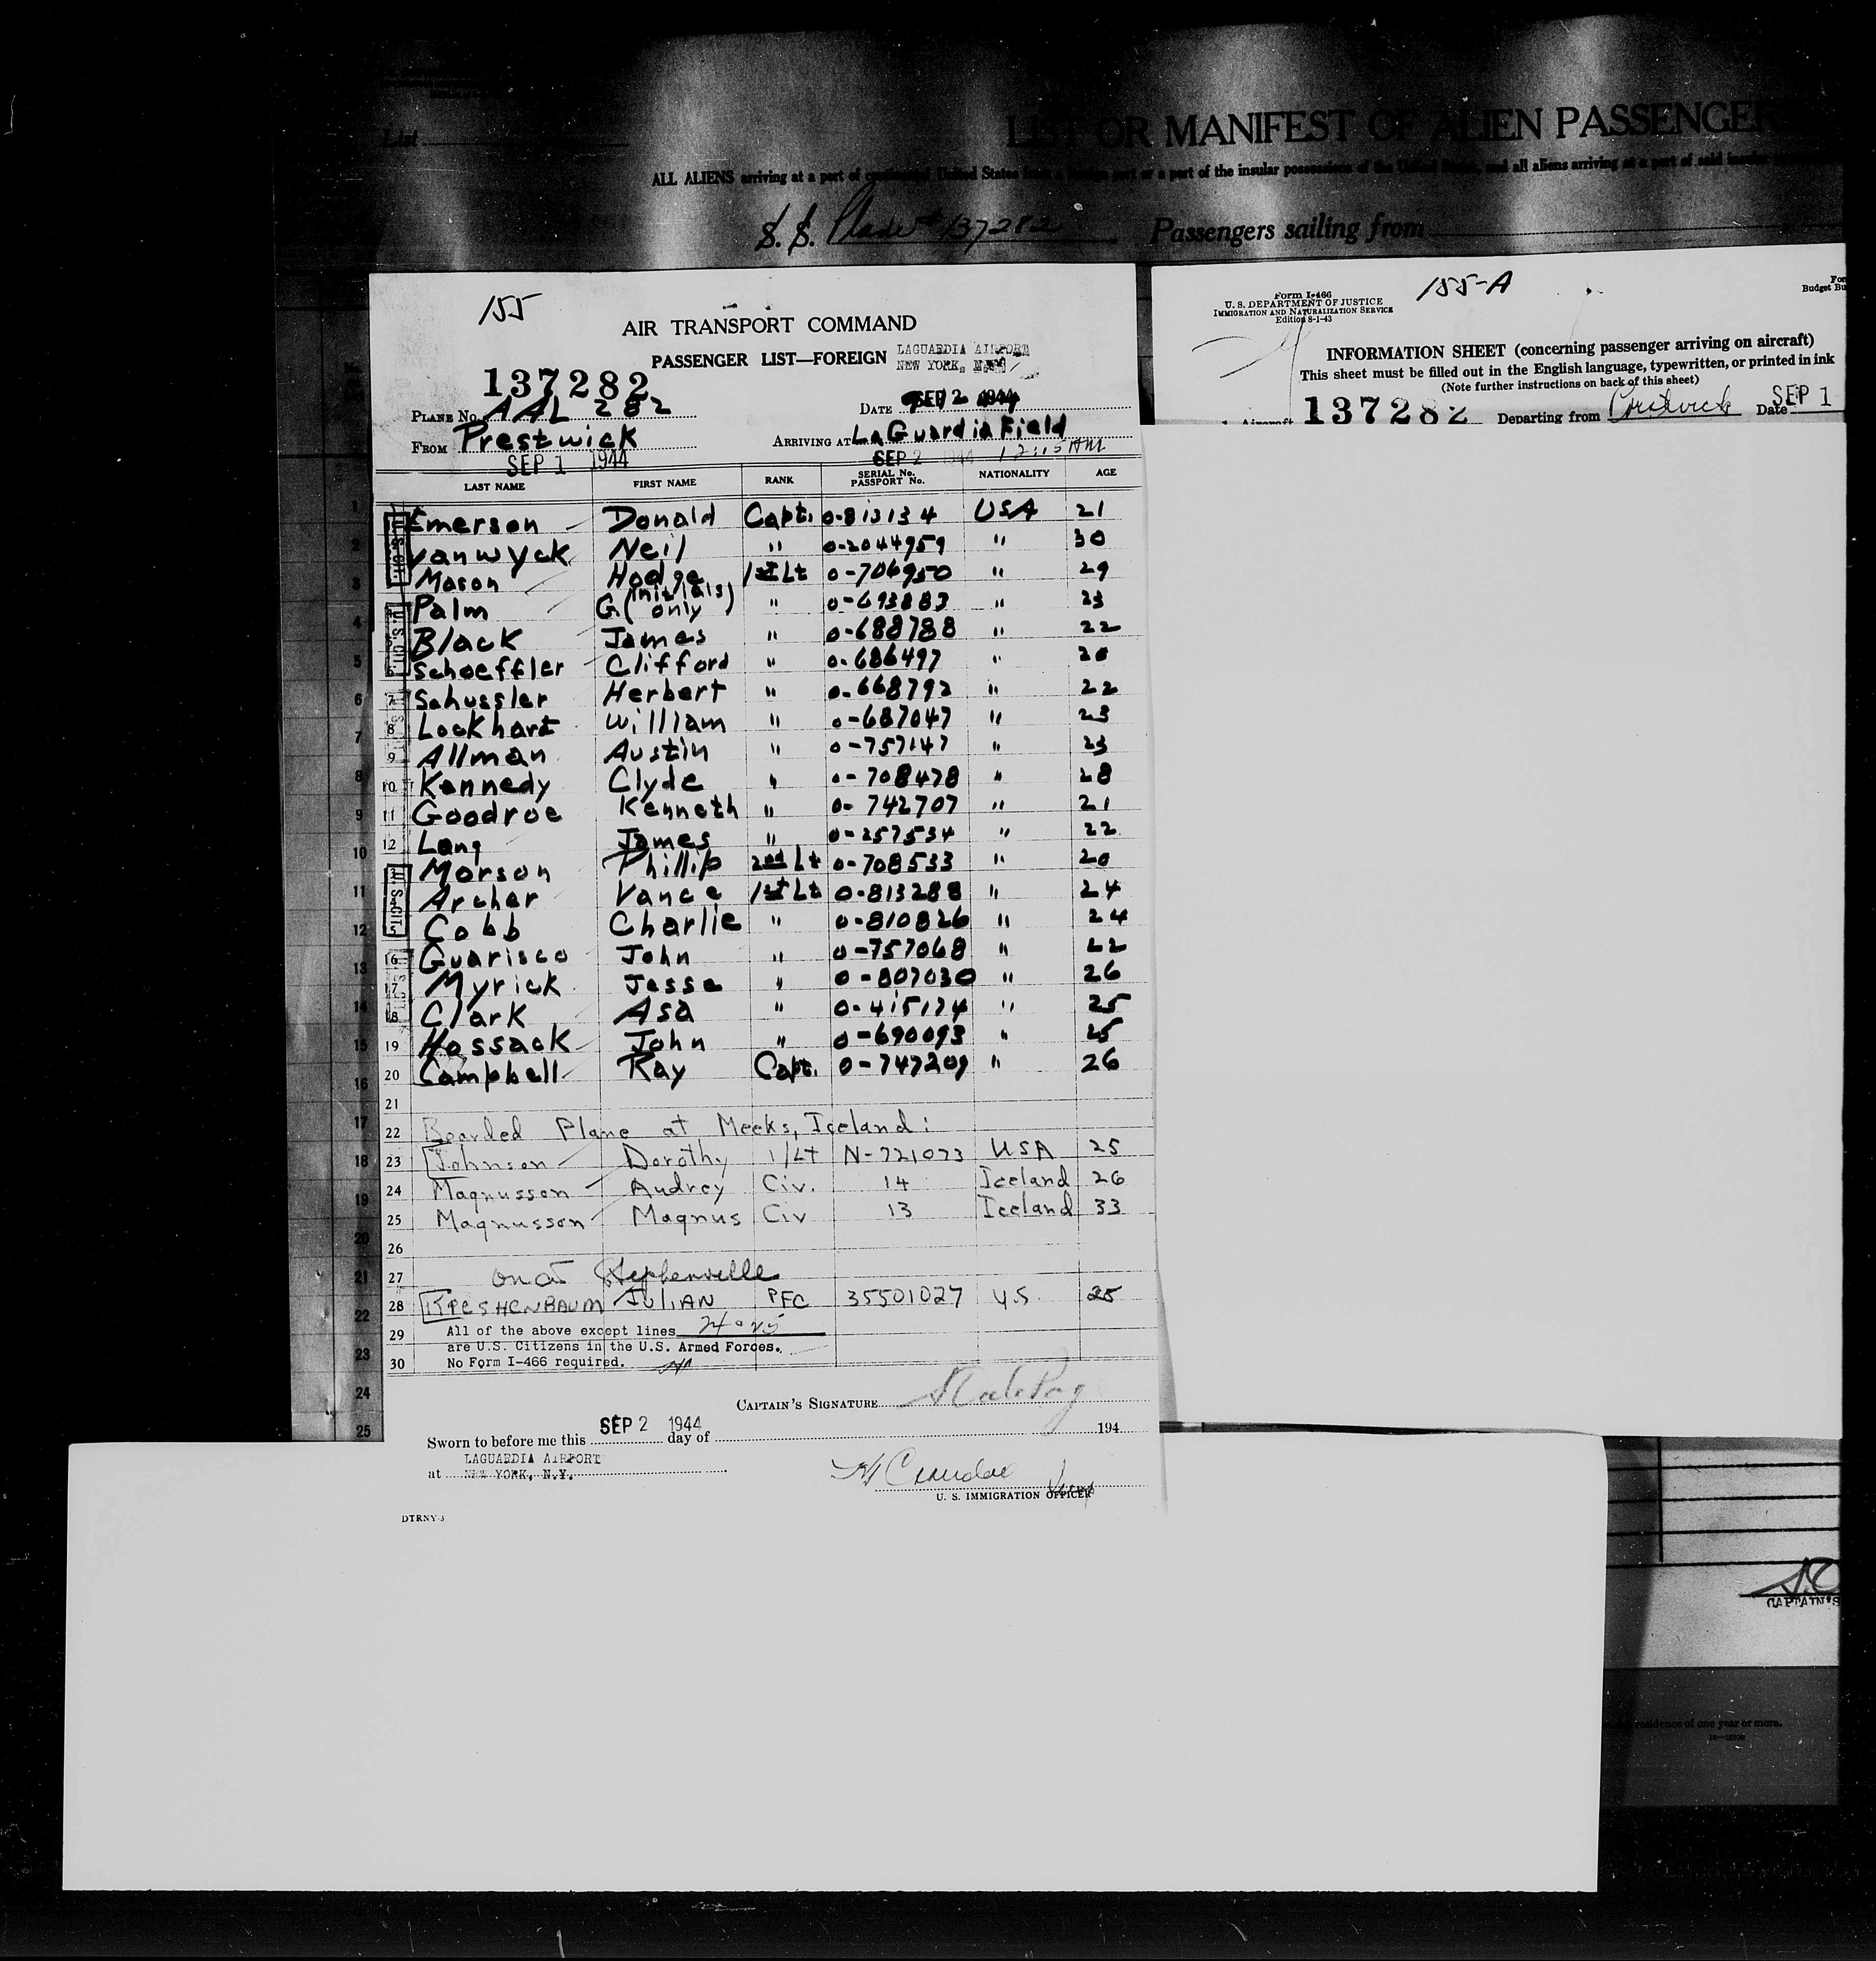 List
LIST OR MANIFEST OF ALIEN PASSENGER
ALL ALIENS arriving at a port of continental United States from a foreign port or a port of the insular possessions of the United States, and all aliens arriving at a port of said insular
S. S. Plane # 137282 Passengers sailing from
155
AIR TRANSPORT COMMAND
PASSENGER LIST—FOREIGN LAGUARDIA AIRPORT
NEW YORK, N.Y.
137282
PLANE No. AAL 282 DATE SEP 2 1944
FROM Prestwick ARRIVING AT La Guardia Field
SEP 1 1944 SEP 2 1944 12:15 AM
LAST NAME FIRST NAME RANK SERIAL No. PASSPORT No. NATIONALITY AGE
Emerson Donald Capt. 0-813134 USA 21
Vanwyck Neil " 0-2044959 " 30
Mason Hodge 1st Lt 0-706950 " 29
Palm G. (initials only) " 0-693883 " 23
Black James " 0-688788 " 22
Schoeffler Clifford " 0-686497 " 20
7 Schussler Herbert " 0-668792 " 22
8 Lockhart William " 0-687047 " 23
9 Allman Austin " 0-757147 " 23
10 Kennedy Clyde " 0-708478 " 28
11 Goodroe Kenneth " 0-742707 " 21
12 Lang James " 0-257534 " 22
Morson Phillip 2nd Lt 0-708533 " 20
Archer Vance 1st Lt 0-813288 " 24
Cobb Charlie " 0-810826 " 24
16 Guarisco John " 0-757068 " 22
17 Myrick Jesse " 0-807030 " 26
18 Clark Asa " 0-415174 " 25
19 Hossack John " 0-690093 " 25
20 Campbell Ray Capt. 0-747209 " 26
21
22 Boarded Plane at Meeks, Iceland:
23 Johnson Dorothy 1/Lt N-721073 USA 25
24 Magnusson Audrey Civ. 14 Iceland 26
25 Magnusson Magnus Civ 13 Iceland 33
26
27 on at Stephenville
28 KRESHENBAUM JULIAN PFC 35501027 U.S. 25
29 All of the above except lines 24 & 25
are U.S. Citizens in the U.S. Armed Forces.
30 No Form I-466 required.
CAPTAIN'S SIGNATURE
Sworn to before me this SEP 2 1944 day of 194
at LAGUARDIA AIRPORT
NEW YORK, N.Y.
U. S. IMMIGRATION OFFICER
DTRNY-3
155-A
Form I-466
U. S. DEPARTMENT OF JUSTICE
IMMIGRATION AND NATURALIZATION SERVICE
Edition 8-1-43
For
Budget Bu
INFORMATION SHEET (concerning passenger arriving on aircraft)
This sheet must be filled out in the English language, typewritten, or printed in ink
(Note further instructions on back of this sheet)
1. Aircraft 137282 Departing from Prestwick Date SEP 1
CAPTAIN'S
residence of one year or more.